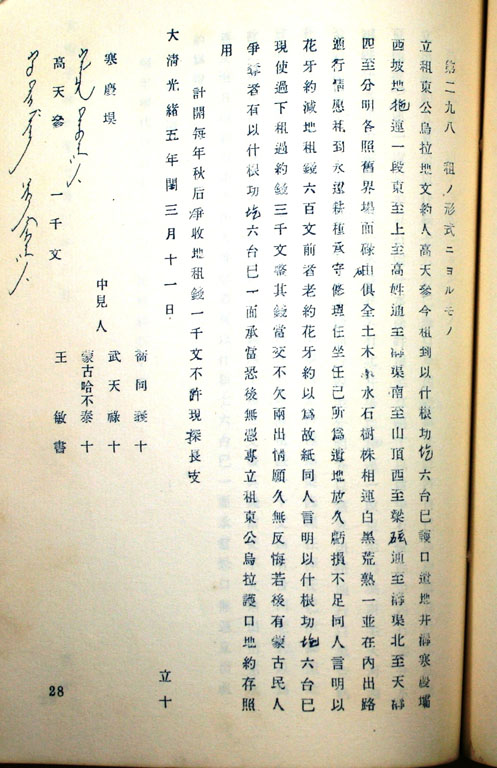 第二九八　租ノ形式ニヨルモノ
立租東公烏拉地文約人高天參今租到以什根功圪六台巳護口遺地井溝寒慶壩
西坡地拖連一段東至上至高姓通至溝渠南至山頂西至梁砥通至溝渠北至天溝
四至分明各照舊界場面碌俱全土木水石樹株相連白黑荒熟一並在內出路
通行情愿租到永遠耕種承守修理任坐任己所爲遺地放久虧損不足同人言明以
花牙約減地租錢六百文前者老約花牙約以爲故紙同人言明以什根功圪六台巳
現使過下租過約錢三千文整其錢當交不欠兩出情願久無反悔若後有蒙古民人
爭奪者有以什根功圪六台巳一面承當恐後無憑專立租東公烏拉護口地約存照
用
計開每年秋后淨收地租錢一千文不許現採長支
大清光緒五年閏三月十一日　立十
中見人
喬同義十
武天祿十
蒙古哈不泰十
王敏書
寒慶垻
高天參　一千文
28